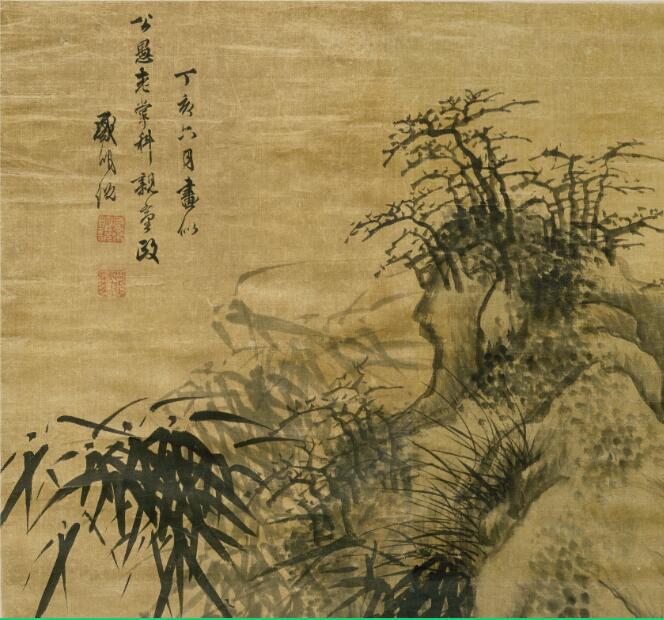 丁亥六月畫似
公愚老掌科親臺政
戴明說